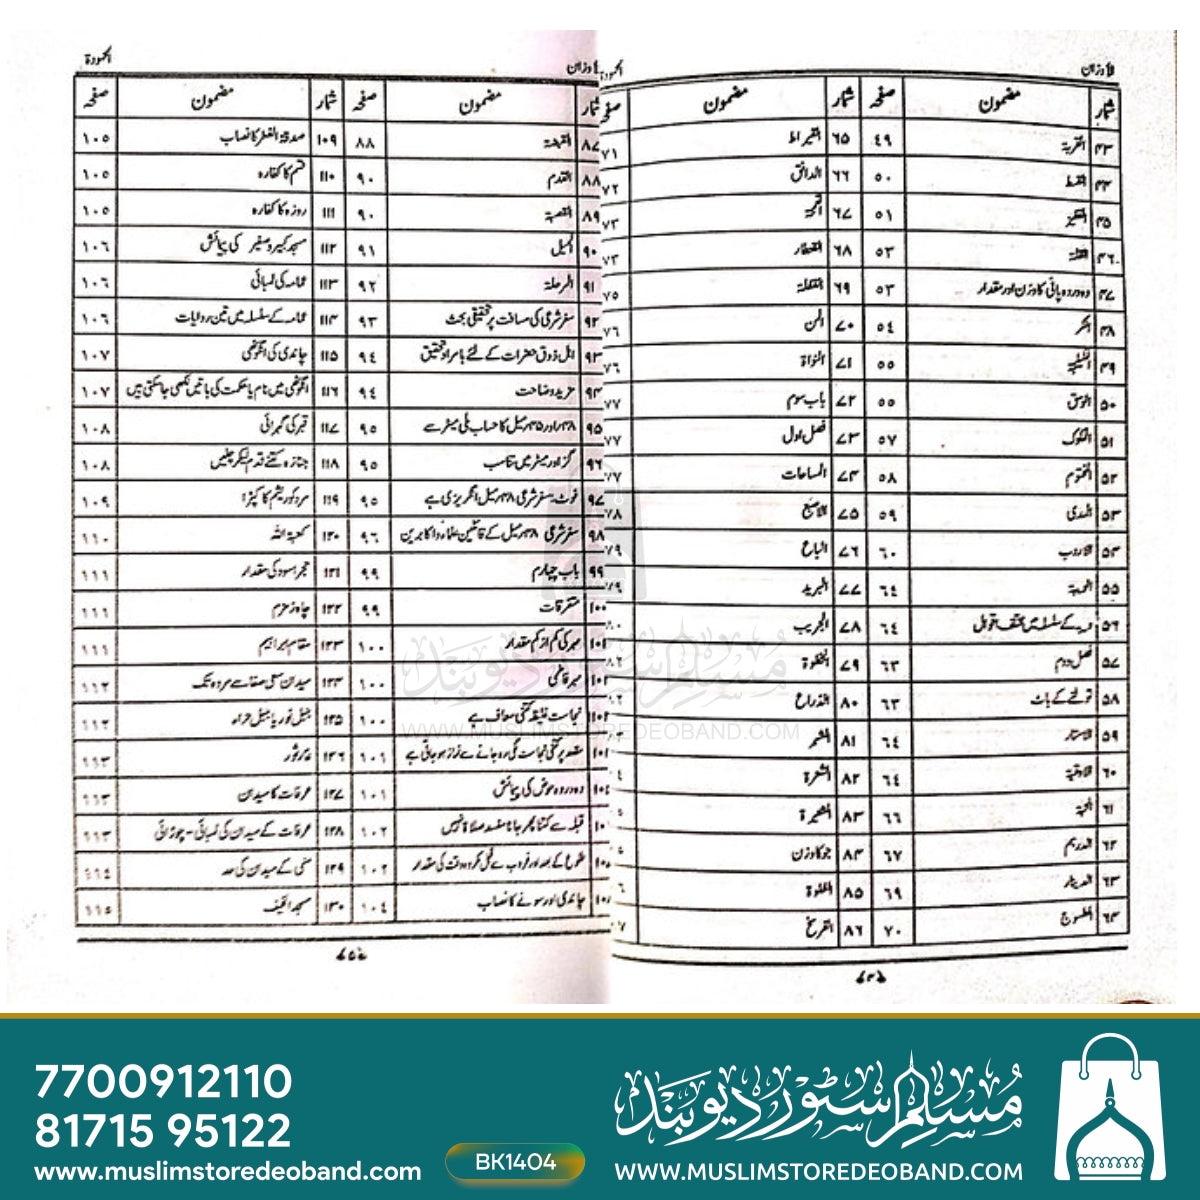 الاوزان المحمودة
شمار مضمون صفحہ شمار مضمون صفحہ
۴۳ القربة ۴۹ ۶۵ القیراط ۷۱
۴۴ القسط ۵۰ ۶۶ الدانق ۷۲
۴۵ القفیز ۵۱ ۶۷ ۷۳
۴۶ القلة ۵۳ ۶۸ القنطار ۷۳
۴۷ دہ در دہ پانی کا وزن اور مقدار ۵۳ ۶۹ ۷۵
۴۸ الکر ۵۴ ۷۰ المن ۷۶
۴۹ ۵۵ ۷۱ النواة ۷۶
۵۰ الوسق ۵۵ ۷۲ باب سوم ۷۷
۵۱ المکوک ۵۷ ۷۳ فصل اول ۷۷
۵۲ المختوم ۵۸ ۷۴ المساحات ۷۷
۵۳ المدی ۵۹ ۷۵ الاصبع ۷۸
۵۴ الاردب ۶۰ ۷۶ الباع ۷۹
۵۵ ۶۴ ۷۷ البرید ۷۹
۵۶ کے سلسلہ میں مختلف اقوال ۶۴ ۷۸ الجریب ۸۰
۵۷ فصل دوم ۶۳ ۷۹ الخطوة ۸۲
۵۸ تولنے کے باٹ ۶۳ ۸۰ الذراع
۵۹ الاستار ۶۴ ۸۱ الشبر
۶۰ الاوقیة ۶۴ ۸۲ الشعرة
۶۱ الحبة ۶۶ ۸۳ الشعیرة
۶۲ الدرہم ۶۷ ۸۴ جو کا وزن
۶۳ الدینار ۶۹ ۸۵ الغلوة
۶۴ الطسوج ۷۰ ۸۶ الفرسخ
الاوزان المحمودة
شمار مضمون صفحہ شمار مضمون صفحہ
۸۷ القبضة ۸۸ ۱۰۹ صدقۃ الفطر کا نصاب ۱۰۵
۸۸ القدم ۹۰ ۱۱۰ قسم کا کفارہ ۱۰۵
۸۹ القصبة ۹۰ ۱۱۱ روزہ کا کفارہ ۱۰۵
۹۰ المیل ۹۱ ۱۱۲ مسجد کبیر و صغیر کی پیمائش ۱۰۶
۹۱ المرحلة ۹۲ ۱۱۳ عمامہ کی لمبائی ۱۰۶
۹۲ سفر شرعی کی مسافت پر تحقیقی بحث ۹۳ ۱۱۴ عمامہ کے سلسلہ میں تین روایات ۱۰۶
۹۳ اہل ذوق حضرات کے لئے بامراد تحقیق ۹۴ ۱۱۵ چاندی کی انگوٹھی ۱۰۷
۹۴ مزید وضاحت ۹۴ ۱۱۶ انگوٹھی میں نام یا حکمت کی باتیں لکھی جا سکتی ہیں ۱۰۷
۹۵ ۴۸ اور ۴۵ میل کا حساب ملی میٹر سے ۹۵ ۱۱۷ قبر کی گہرائی ۱۰۸
۹۶ گز اور میٹر میں تناسب ۹۵ ۱۱۸ جنازہ کتنے قدم لیکر چلیں ۱۰۸
۹۷ نوٹ: سفر شرعی ۴۸ میل انگریزی ہے ۹۵ ۱۱۹ مرد کو ریشم کا کپڑا ۱۰۹
۹۸ سفر شرعی ۴۸ میل کے قائلین علماء و اکابرین ۹۶ ۱۲۰ کعبۃ اللہ ۱۱۰
۹۹ باب چہارم ۹۹ ۱۲۱ حجر اسود کی مقدار ۱۱۱
۱۰۰ متفرقات ۹۹ ۱۲۲ چاہ زمزم ۱۱۱
۱۰۱ مہر کی کم از کم مقدار ۱۰۰ ۱۲۳ مقام ابراہیم ۱۱۱
۱۰۲ مہر فاطمی ۱۰۰ ۱۲۴ میدان سعی صفا سے مروہ تک ۱۱۲
۱۰۳ نجاست غلیظہ کتنی معاف ہے ۱۰۰ ۱۲۵ جبل نور یا جبل حراء ۱۱۲
عضو پر کتنی نجاست لگی رہ جانے سے نماز ہو جاتی ہے ۱۰۱ ۱۲۶ غار ثور ۱۱۳
دہ در دہ حوض کی پیمائش ۱۰۱ ۱۲۷ عرفات کا میدان ۱۱۳
قبلہ سے کتنا پھر جانا مفسد صلاۃ نہیں ۱۰۲ ۱۲۸ عرفات کے میدان کی لمبائی - چوڑائی ۱۱۳
طلوع کے بعد اور غروب سے قبل مکروہ وقت کی مقدار ۱۰۲ ۱۲۹ منی کے میدان کی حد ۱۱۴
چاندی اور سونے کا نصاب ۱۰۴ ۱۳۰ مسجد الخیف ۱۱۵
مسلم سٹور دیوبند
WWW.MUSLIMSTOREDEOBAND.COM
7700912110
81715 95122
www.muslimstoredeoband.com
BK1404
مسلم سٹور دیوبند
WWW.MUSLIMSTOREDEOBAND.COM